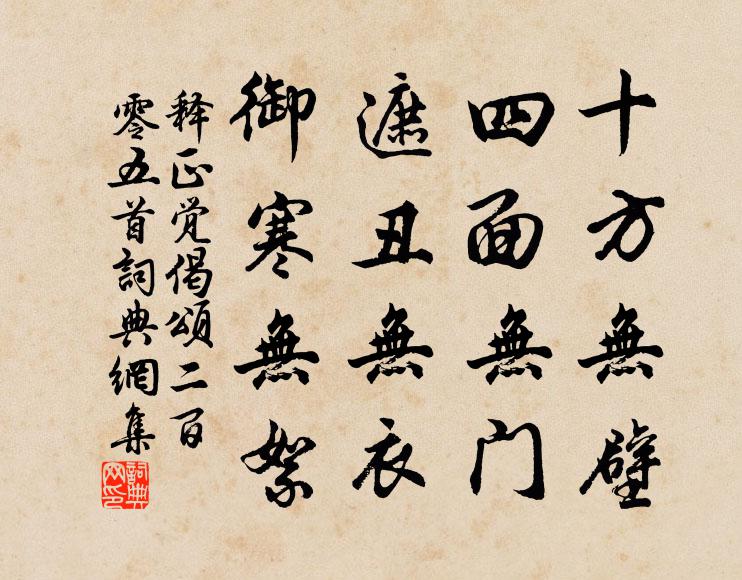 十方無壁
四面無门
遮丑無衣
御寒無絮
释正觉偈頌二百
零五首詞典網集
詞典网印